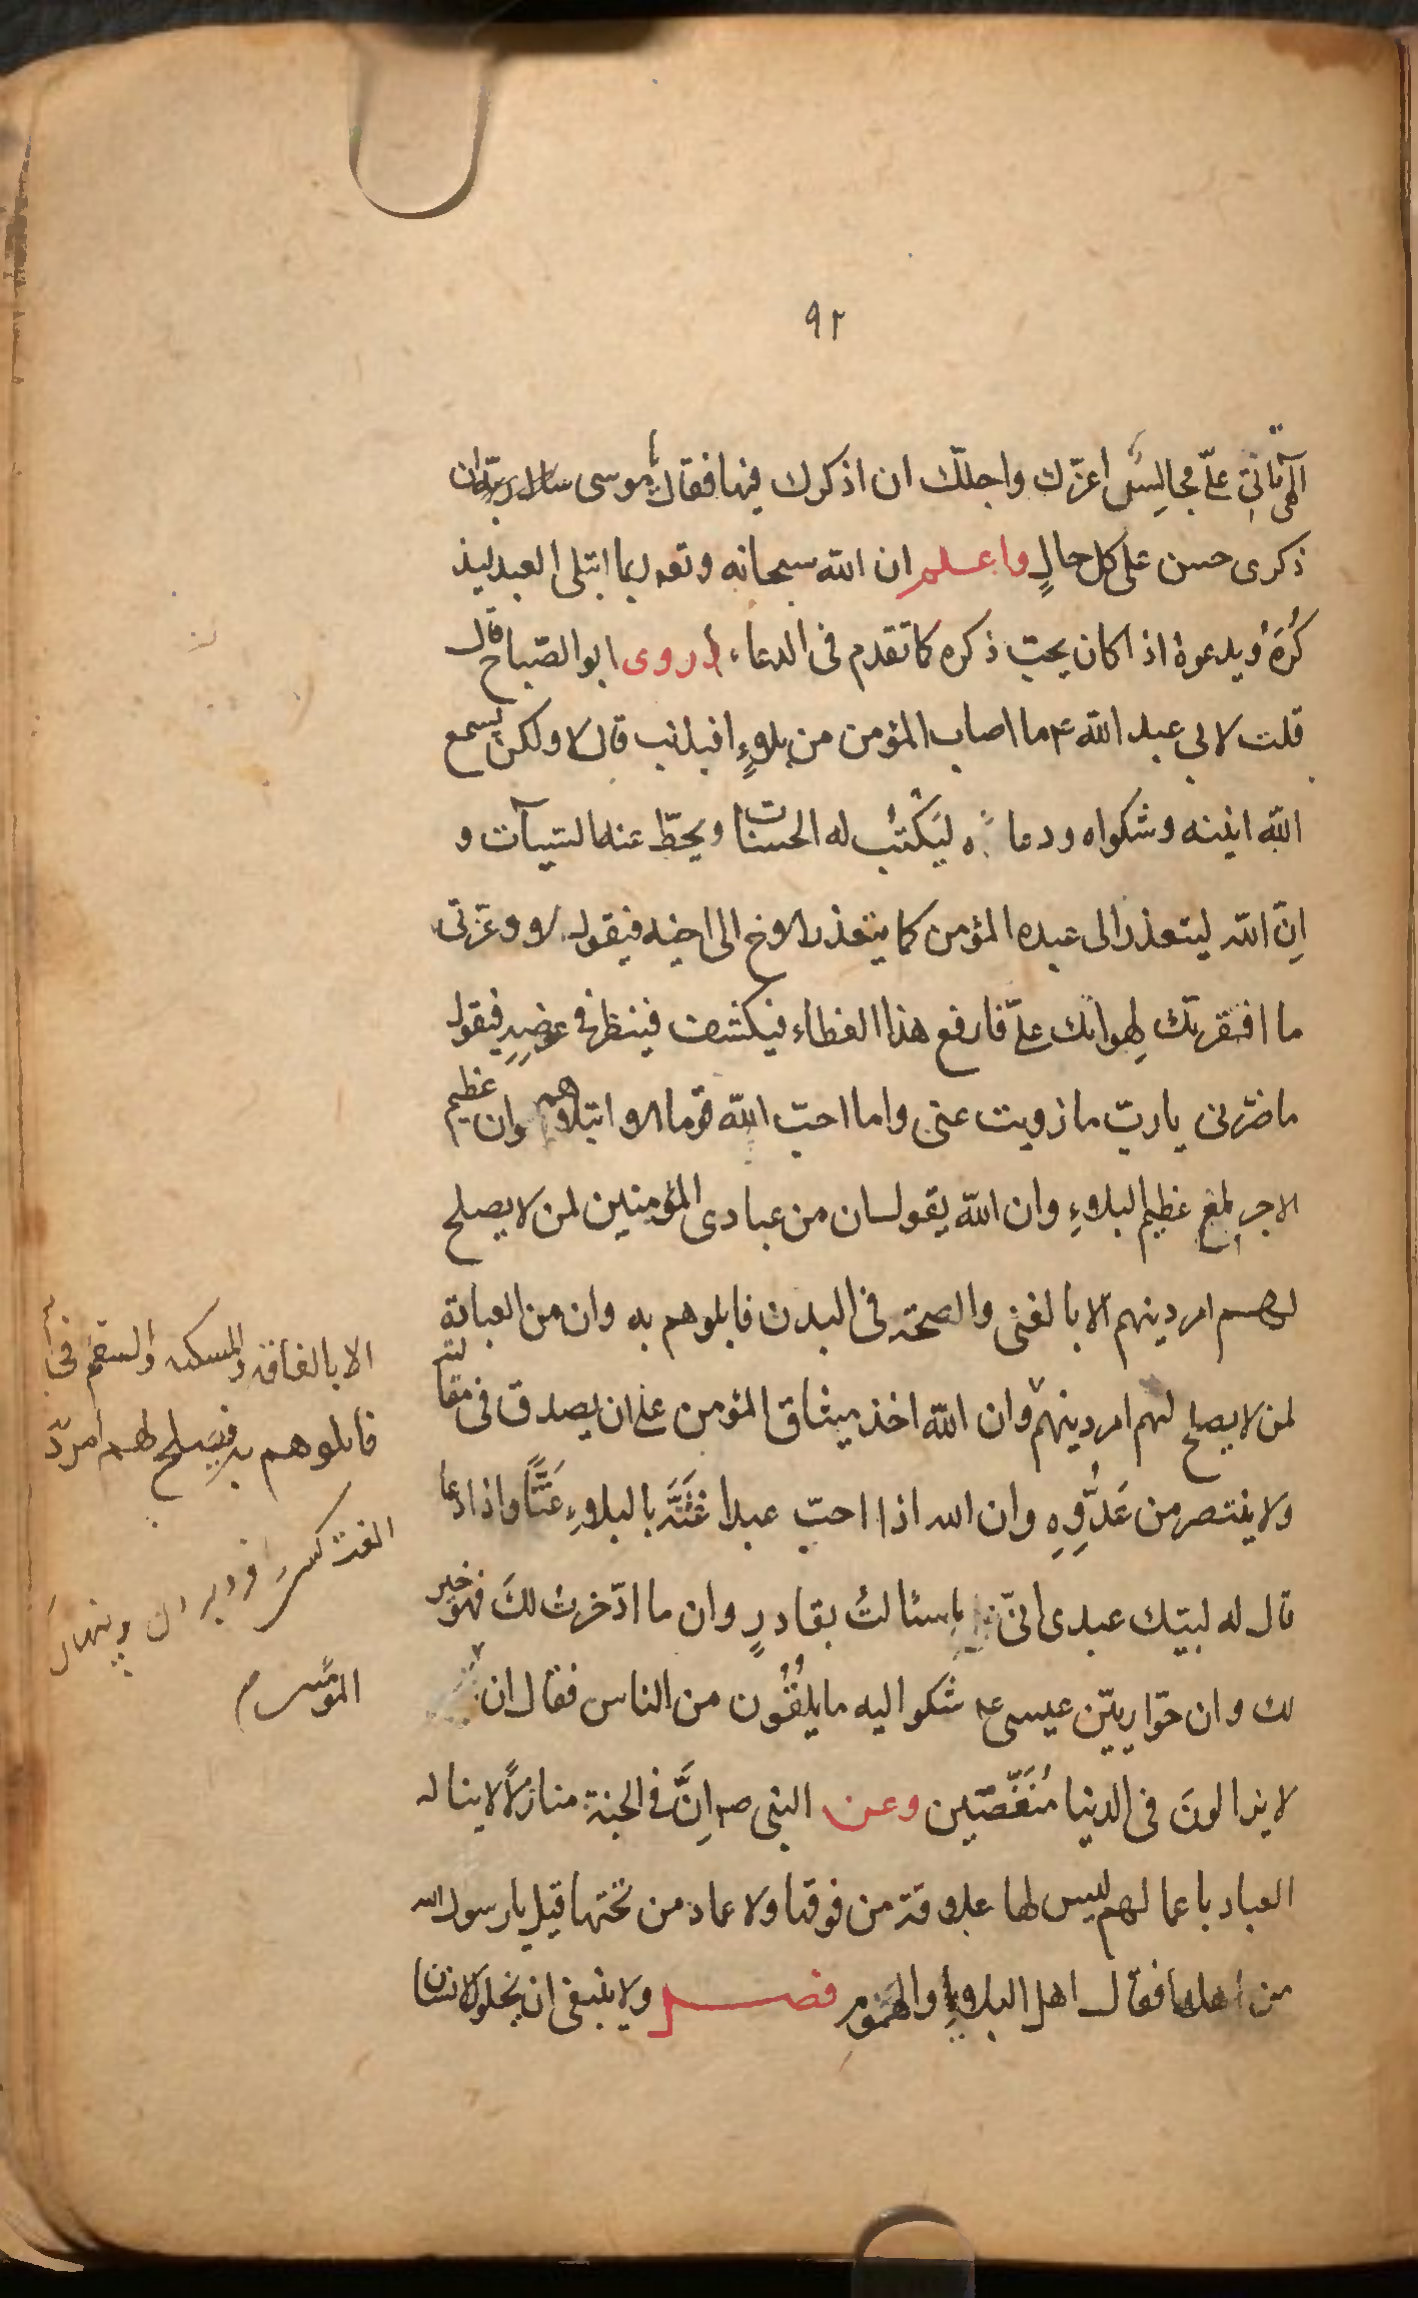 ٩٢
الهى يأتى علىّ مجالِسُ اعزّك واجلّك ان اذكرك فيها فقال يا موسى ان
ذكرى حسن على كل حالٍ واعلم ان الله سبحانه وتعه ربما ابتلى العبد ليذ
كُرَهُ ويدعوهُ اذا كان يحبّ ذكره كما تقدم فى الدعاء روى ابو الصّباح قال
قلت لابى عبد الله ع ما اصاب المؤمن من بلاءٍ افبذنب قال لا ولكن ليسمع
الله انينه وشكواه ودعاءه ليَكْتُبُ له الحسنات ويحطّ عنه السّيّآت و
اِنّ الله ليتعذر الى عبده المؤمن كما يتعذر الاخ الى اخيه فيقول لا وعزّتى
ما افقرتك لِهوانك علىّ فارفع هذا الغطاء فيكشف فينظر فى عوضِهِ فيقول
ما ضرّنى يا ربّ ما زويت عنى وما احبّ الله قوما الا ابتلاهم وان عظيم
الاجر لمع عظيم البلاءِ وان الله يقول ان من عبادى المؤمنين لمن لا يصلح
لهم امر دينهم الا بالغنى والصحّة فى البدن فابلوهم به وان من العباد
لمن لا يصلح لهم امر دينهم وان الله اخذ ميثاق المؤمن على ان يصدق فى مقالته
ولا ينتصر من عَدُوِّهِ وان الله اذا احبّ عبدا غَتَّهُ بالبلاءِ غَتًّا واذا دعا
قال له لبيّك عبدى انّى ما سئالتُ بقادرٍ وان ما ادّخرتُ لكَ فهو خير
لك وان حوّاريّين عيسى ع شكوا اليه ما يلقُون من الناس فقال ان
لا يزالونَ فى الدنيا مُنَغَّصّين وعن النبى ص اِنَّ فى الجنة منازلاً لا ينالها
العباد باعمالهم ليس لها علاقة من فوقها ولا عماد من تحتها قيل يا رسول الله
من اهلها فقال اهل البلاءِ والهُمُومِ فصل ولا ينبغى ان يخلو الانسان
الا بالفاقة والمسكنه والسقم فى
فابلوهم به فيصلح لهم امر د
الغت